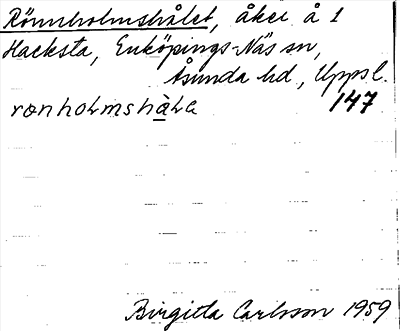 Rönnholmshålet, åker å 1
Hacksta, Enköpings-Näs sn,
Åsunda hd, Uppsl.
rønhoLmshàLe 147
Birgitta Carlsson 1959